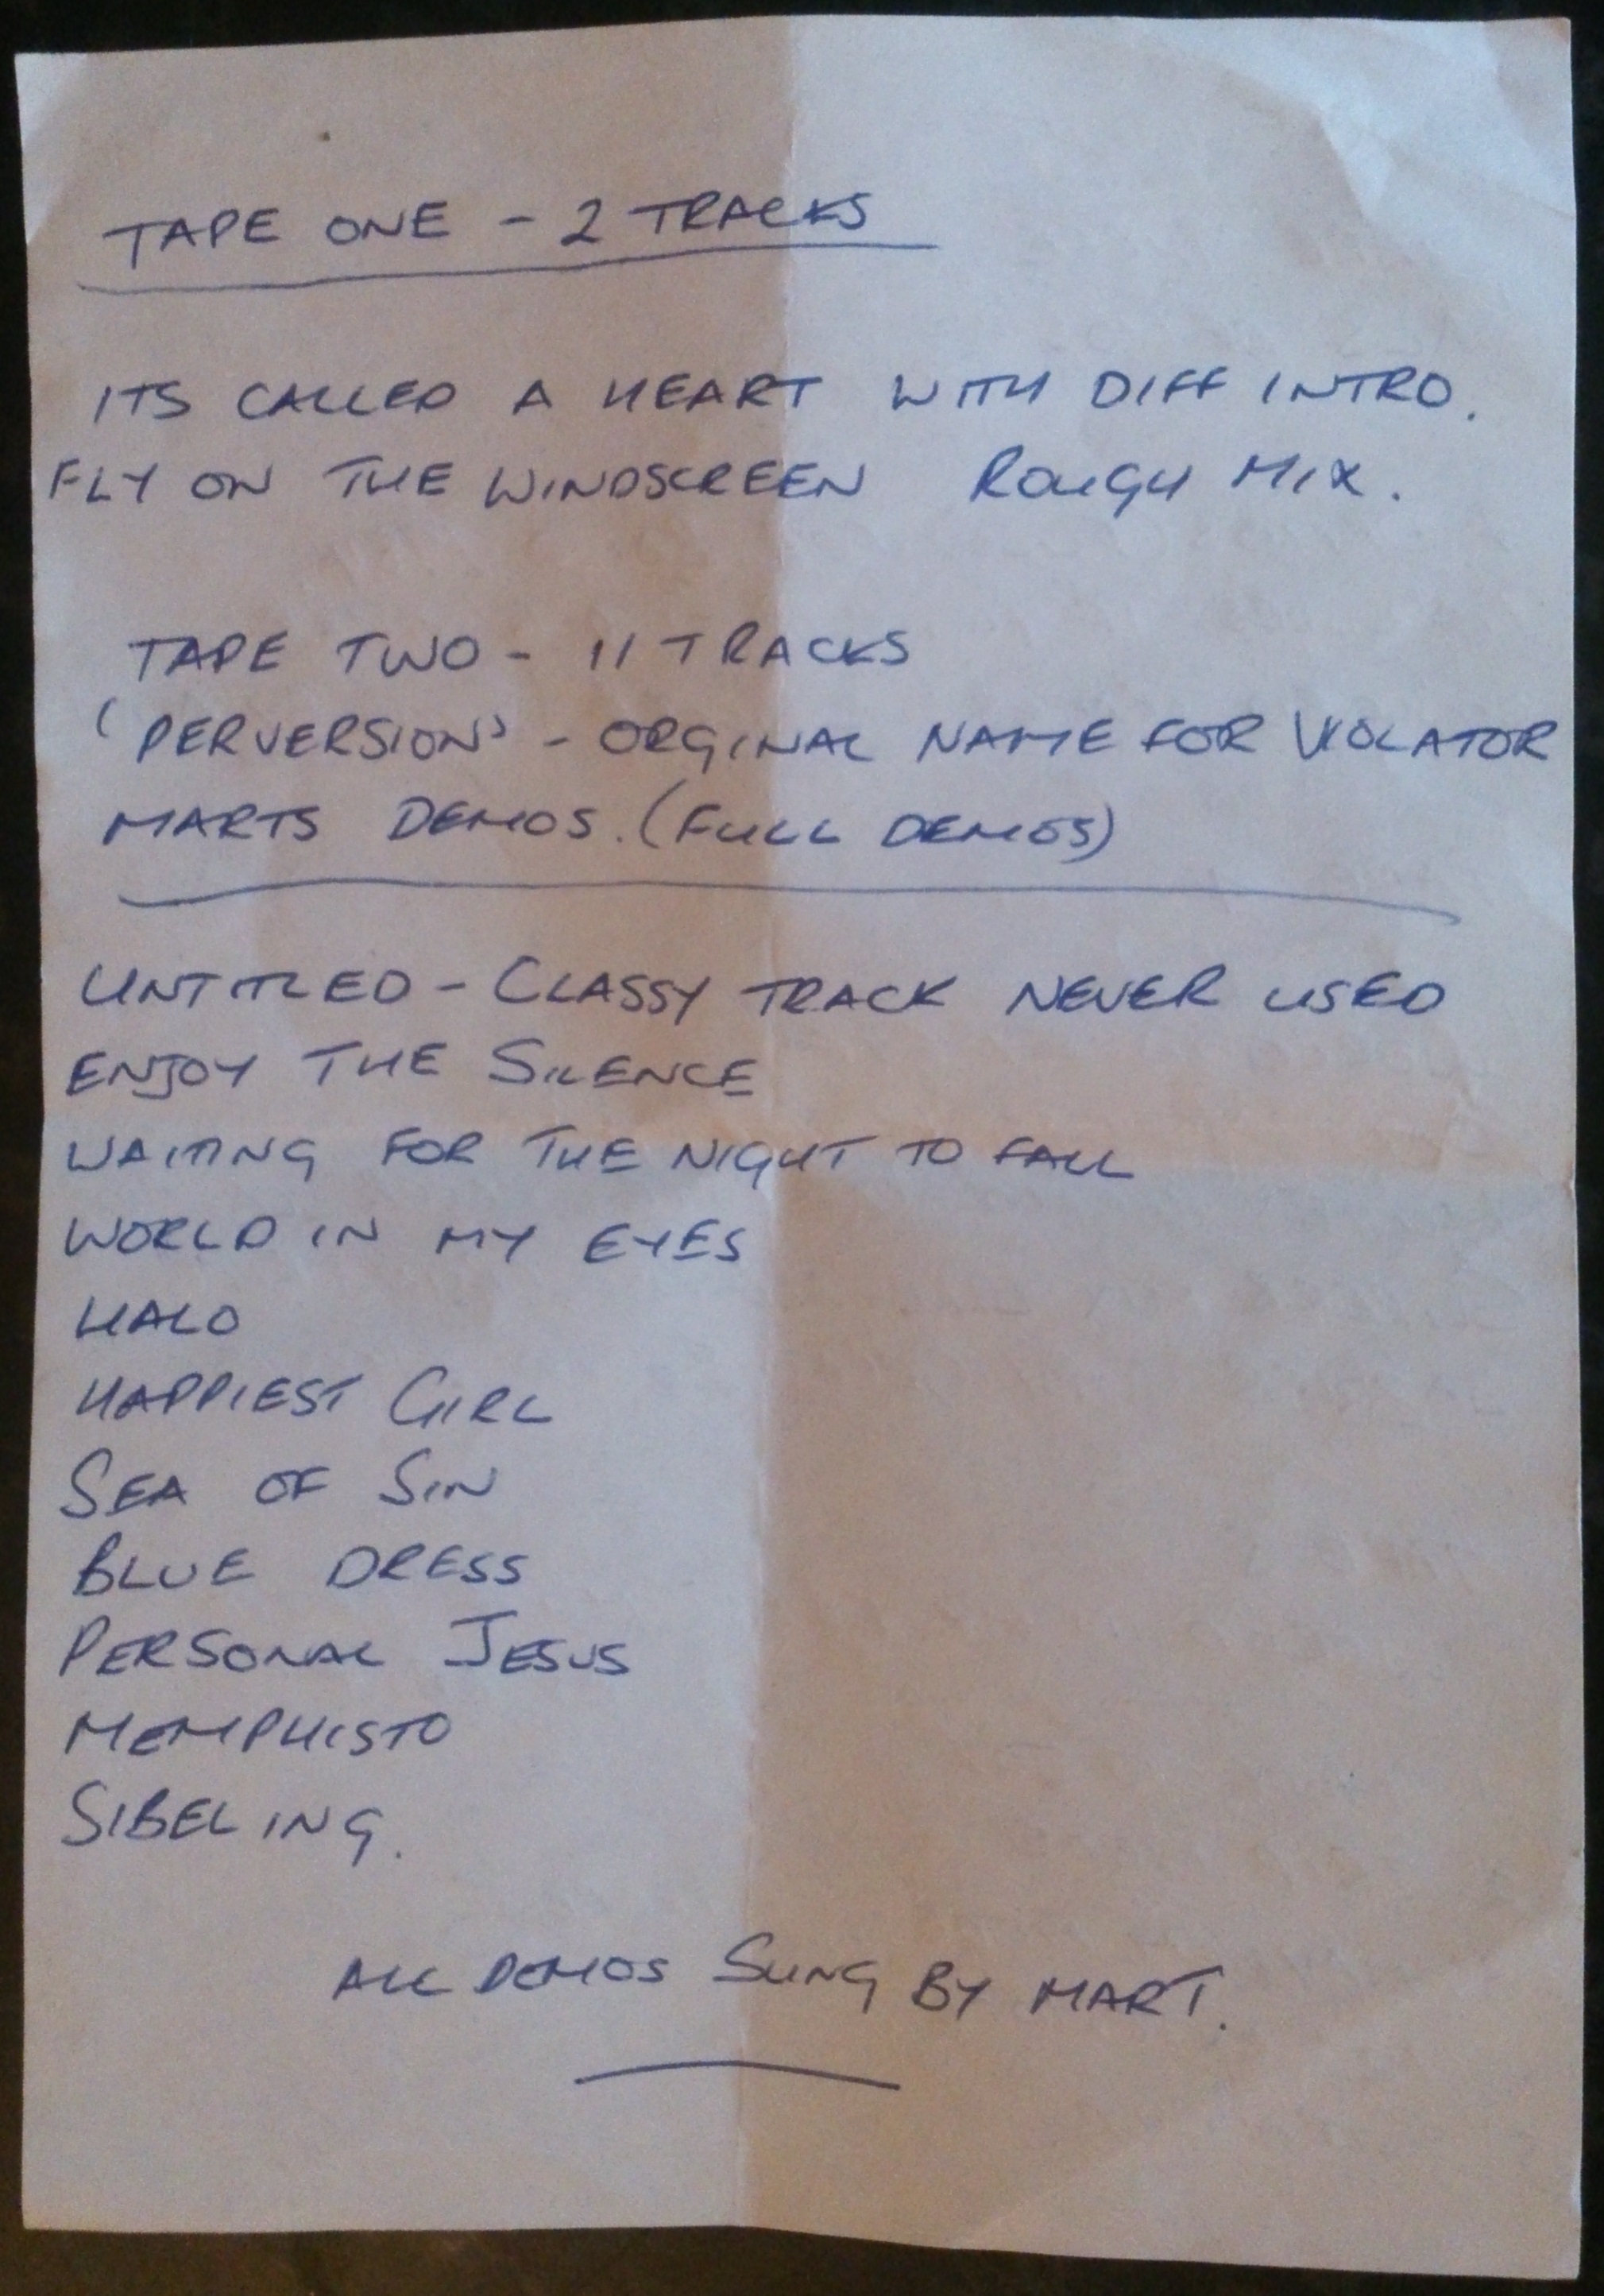 TAPE ONE - 2 TRACKS
ITS CALLED A HEART WITH DIFF INTRO.
FLY ON THE WINDSCREEN ROUGH MIX.
TAPE TWO - 11 TRACKS
'PERVERSION' - ORGINAL NAME FOR VIOLATOR
MARTS DEMOS. (FULL DEMOS)
UNTITLED - CLASSY TRACK NEVER USED
ENJOY THE SILENCE
WAITING FOR THE NIGHT TO FALL
WORLD IN MY EYES
HALO
HAPPIEST GIRL
SEA OF SIN
BLUE DRESS
PERSONAL JESUS
MEMPHISTO
SIBELING.
ALL DEMOS SUNG BY MART.